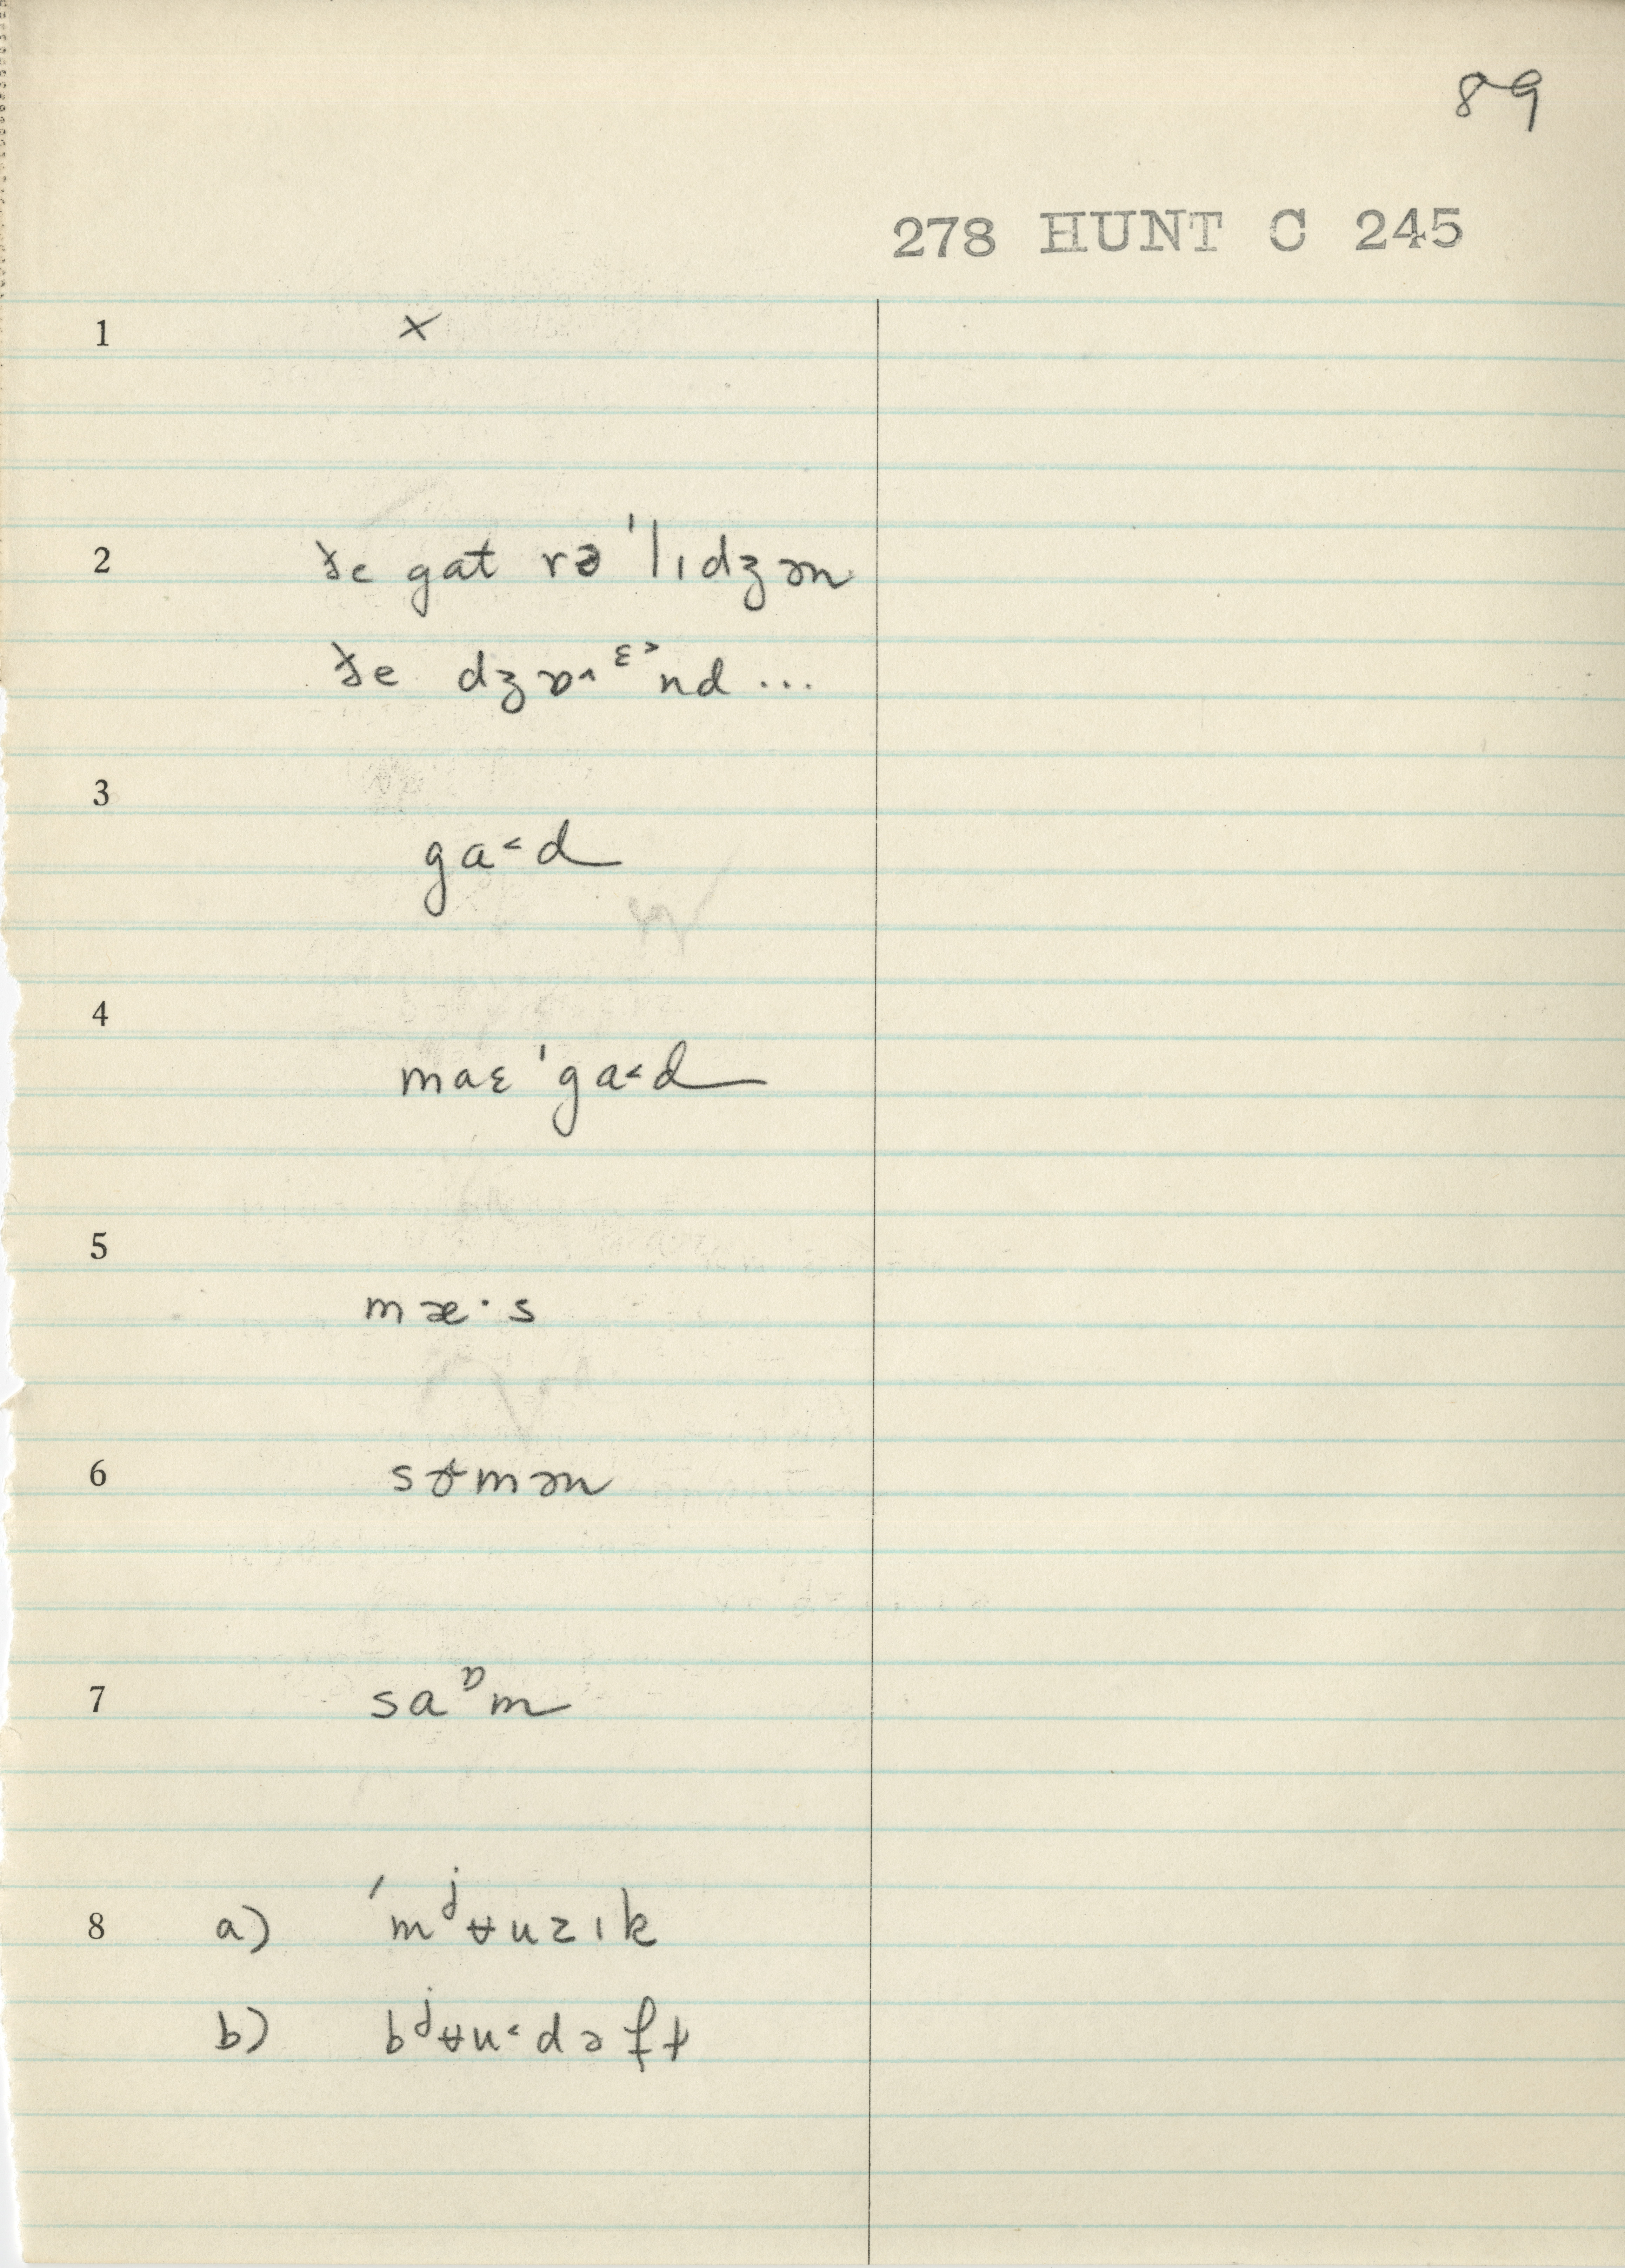 89
278 HUNT C 245
1 ×
2 ɟe gat rə ˈlɪdʒən
ɟe dʒɒ˄ᵋ˃nd ...
3 ga˂d
4 maɛ ˈga˂d
5 mæ·s
6 mən
7 saᶛm
8 a) ˈmʲʉuzɪk
b) bʲʉu˂dəft